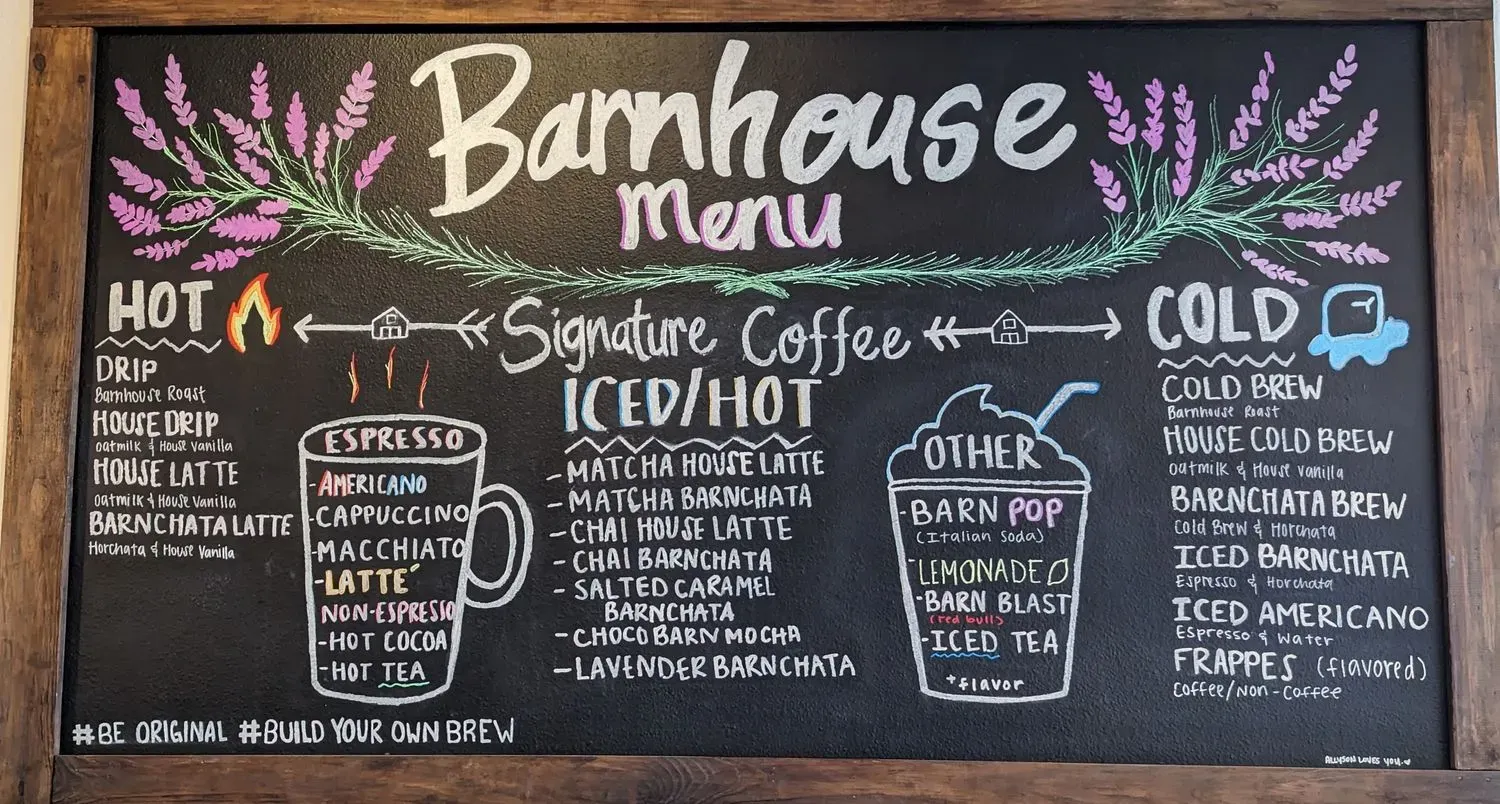 Barnhouse
menu
HOT
DRIP
Barnhouse Roast
HOUSE DRIP
Oatmilk & House Vanilla
HOUSE LATTE
Oatmilk & House Vanilla
BARNCHATA LATTE
Horchata & House Vanilla
ESPRESSO
-AMERICANO
-CAPPUCCINO
-MACCHIATO
-LATTE´
NON-ESPRESSO
-HOT COCOA
-HOT TEA
Signature Coffee
ICED/HOT
- MATCHA HOUSE LATTE
- MATCHA BARNCHATA
- CHAI HOUSE LATTE
- CHAI BARNCHATA
- SALTED CARAMEL
BARNCHATA
- CHOCO BARN MOCHA
- LAVENDER BARNCHATA
OTHER
-BARN POP
(Italian Soda)
-LEMONADE
-BARN BLAST
(red bull)
-ICED TEA
+flavor
COLD
COLD BREW
Barnhouse Roast
HOUSE COLD BREW
Oatmilk & House Vanilla
BARNCHATA BREW
Cold Brew & Horchata
ICED BARNCHATA
Espresso & Horchata
ICED AMERICANO
Espresso & Water
FRAPPES (flavored)
Coffee/Non-Coffee
#BE ORIGINAL #BUILD YOUR OWN BREW
ALLYSON LOVES YOU.♥